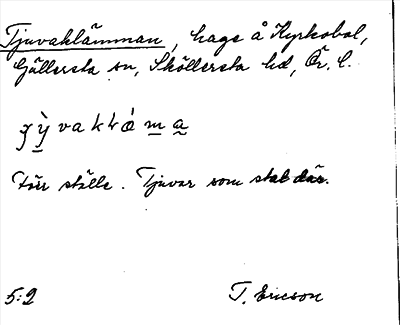 Tjuvaklämman, hage å Kyrkobol,
Gällersta sn, Sköllersta hd, Ör. l.
Förr ställe. Tjuvar som stal där.
5:2 T. Ericson